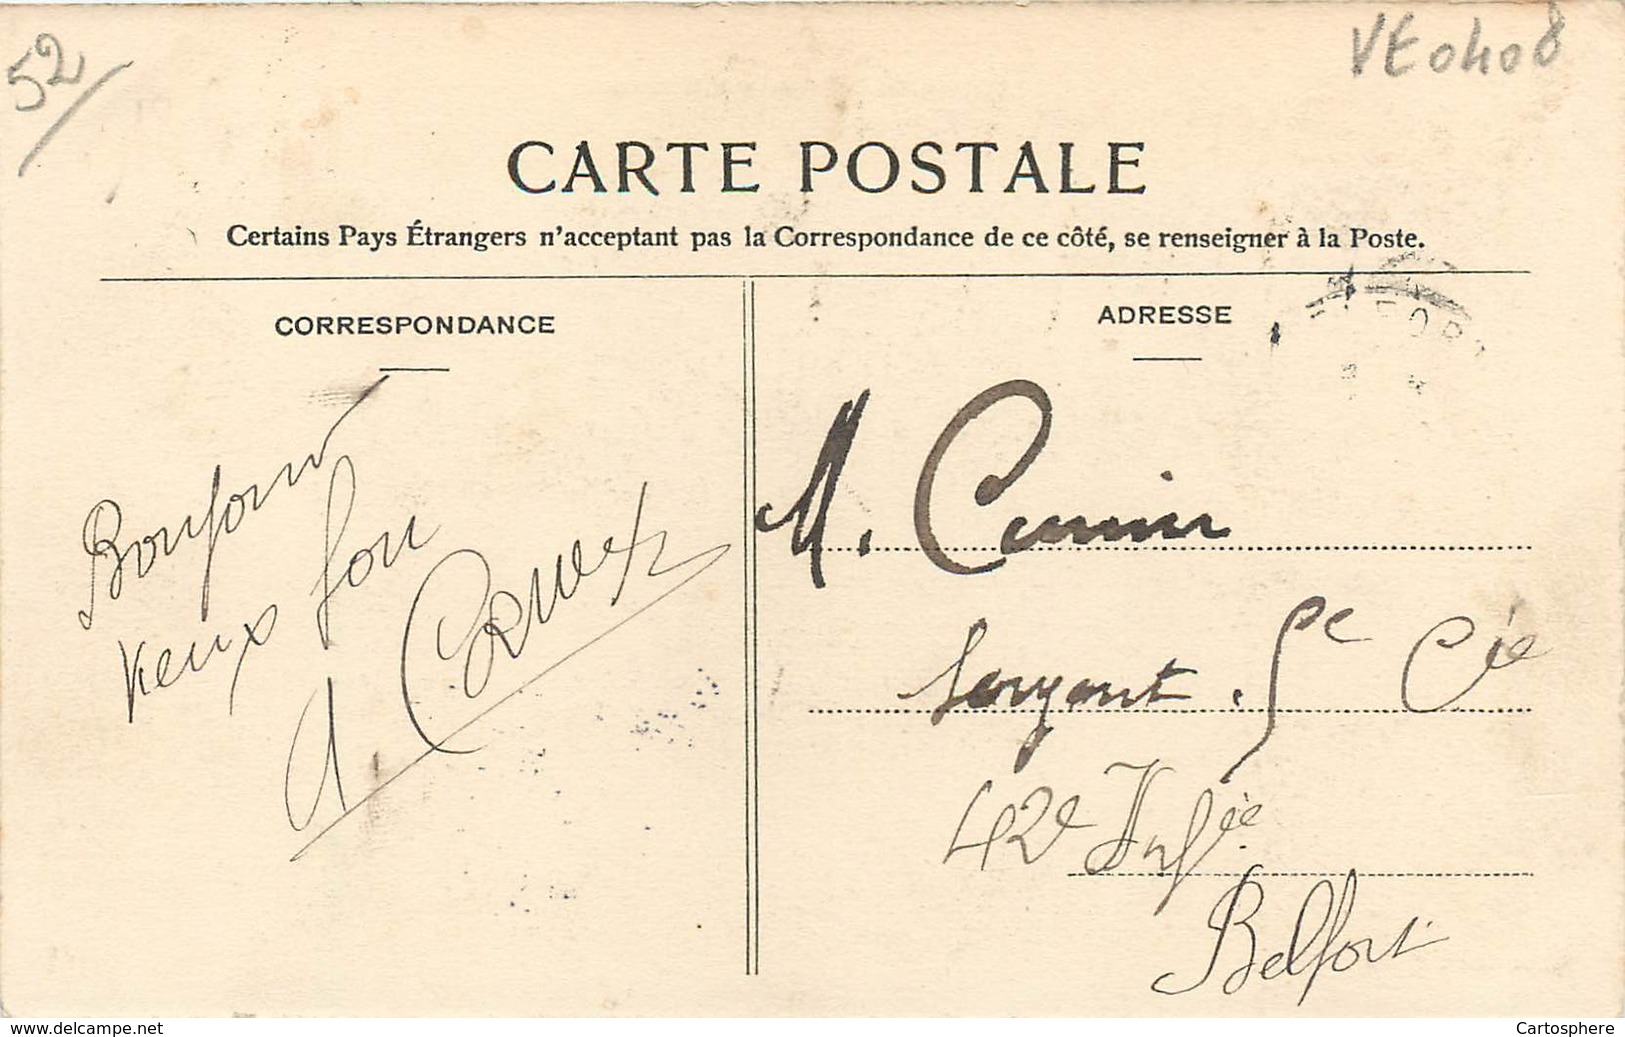 52
VE0408
CARTE POSTALE
Certains Pays Étrangers n'acceptant pas la Correspondance de ce côté, se renseigner à la Poste.
CORRESPONDANCE
ADRESSE
Bonjour
vieux fou
M. Cunin
Sergent 5e Cie
42e Infie
Belfort
www.delcampe.net
Cartosphere